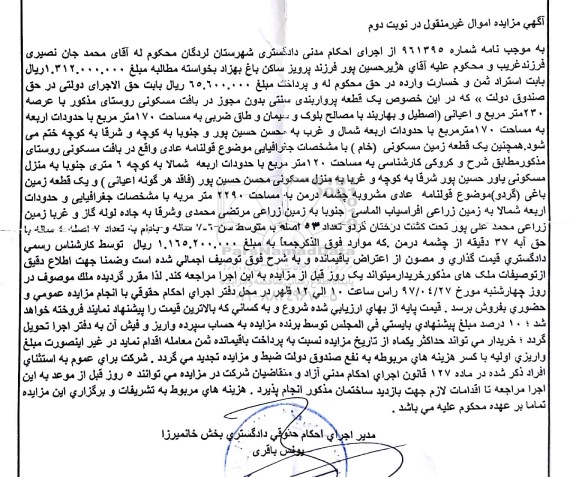 آگهي مزايده اموال غيرمنقول در نوبت دوم
به موجب نامه شماره ۹۶۱۳۹۵ از اجرای احکام مدنی دادگستری شهرستان لردگان محکوم له آقای محمد جان نصیری
فرزندغریب و محکوم علیه آقای هژیرحسین پور فرزند پرویز ساکن باغ بهزاد بخواسته مطالبه مبلغ ۱.۳۱۲.۰۰۰.۰۰۰ریال
بابت استراد ثمن و خسارت وارده در حق محکوم له و پرداخت مبلغ ۶۵.۶۰۰.۰۰۰ ریال بابت حق الاجرای دولتی در حق
صندوق دولت » که در این خصوص یک قطعه پرواربندی سنتی بدون مجوز در بافت مسکونی روستای مذکور با عرصه
۲۳۰متر مربع و اعیانی (اصطبل و بهاربند با مصالح بلوک و سیمان و طاق ضربی به مساحت ۱۷۰متر مربع با حدودات اربعه
به مساحت ۱۷۰مترمربع با حدودات اربعه شمالا و غرب به محسن حسین پور و جنوبا به کوچه و شرقا به کوچه ختم می
شود.همچنین یک قطعه زمین مسکونی (خام ) با مشخصات جغرافیایی موضوع قولنامه عادی واقع در بافت مسکونی روستای
مذکورمطابق شرح و کروکی کارشناسی به مساحت ۱۲۰متر مربع با حدودات اربعه شمالا به کوچه ۶ متری جنوبا به منزل
مسکونی یاور حسین پور شرقا به کوچه و غربا به منزل مسکونی محسن حسین پور (فاقد هر گونه اعیانی ) و یک قطعه زمین
باغی (گردو)موضوع قولنامه عادی مشروبه چشمه درمن به مساحت ۲۲۹۰ متر مربه با مشخصات جغرافیایی و حدودات
اربعه شمالا به زمین زراعی افراسیاب الماسی جنوبا به زمین زراعی مرتضی محمدی وشرقا به جاده لوله گاز و غربا زمین
زراعی محمد علی پور تحت کشت درختان گردو تعداد ۵۳ اصله با متوسط سن ۶-۷ ساله و بادام به تعداد ۷ اصله ۴ ساله با
حق آبه ۳۷ دقیقه از چشمه درمن .که موارد فوق الذکرجمعا به مبلغ ۱.۱۶۵.۲۰۰.۰۰۰ ریال توسط کارشناس رسمی
دادگستري قيمت گذاري و مصون از اعتراض باقيمانده و به شرح فوق توصيف اجمالي شده است وضمنا جهت اطلاع دقيق
ازتوصيفات ملک هاي مذکورخريدارميتواند يک روز قبل از مزايده به اين اجرا مراجعه کند. لذا مقرر گرديده ملک موصوف در
روز چهارشنبه مورخ ۹۷/۰۴/۲۷ راس ساعت ۱۰ الي ۱۲ ظهر در محل دفتر اجراي احکام حقوقي با انجام مزايده عمومي و
حضوري بفروش برسد . قيمت پايه از بهاي ارزيابي شده شروع و به کساني که بالاترين قيمت را پيشنهاد نمايند فروخته خواهد
شد ؛ ۱۰ درصد مبلغ پيشنهادي بايستي في المجلس توسط برنده مزايده به حساب سپرده واريز و فيش آن به دفتر اجرا تحويل
گردد ؛ خريدار مي تواند حداکثر يکماه از تاريخ مزايده نسبت به پرداخت باقيمانده ثمن معامله اقدام نمايد در غير اينصورت مبلغ
واريزي اوليه با کسر هزينه هاي مربوطه به نفع صندوق دولت ضبط و مزايده تجديد مي گردد . شرکت براي عموم به استثناي
افراد ذکر شده در ماده ۱۲۷ قانون اجراي احکام مدني آزاد و متقاضيان شرکت در مزايده مي توانند ۵ روز قبل از موعد به اين
اجرا مراجعه تا اقدامات لازم جهت بازديد ساختمان مذکور انجام پذيرد . هزينه هاي مربوط به تشريفات و برگزاري اين مزايده
تماما بر عهده محکوم عليه مي باشد .
مدير اجراي احكام حقوقي دادگستري بخش خانميرزا
يونس باقری